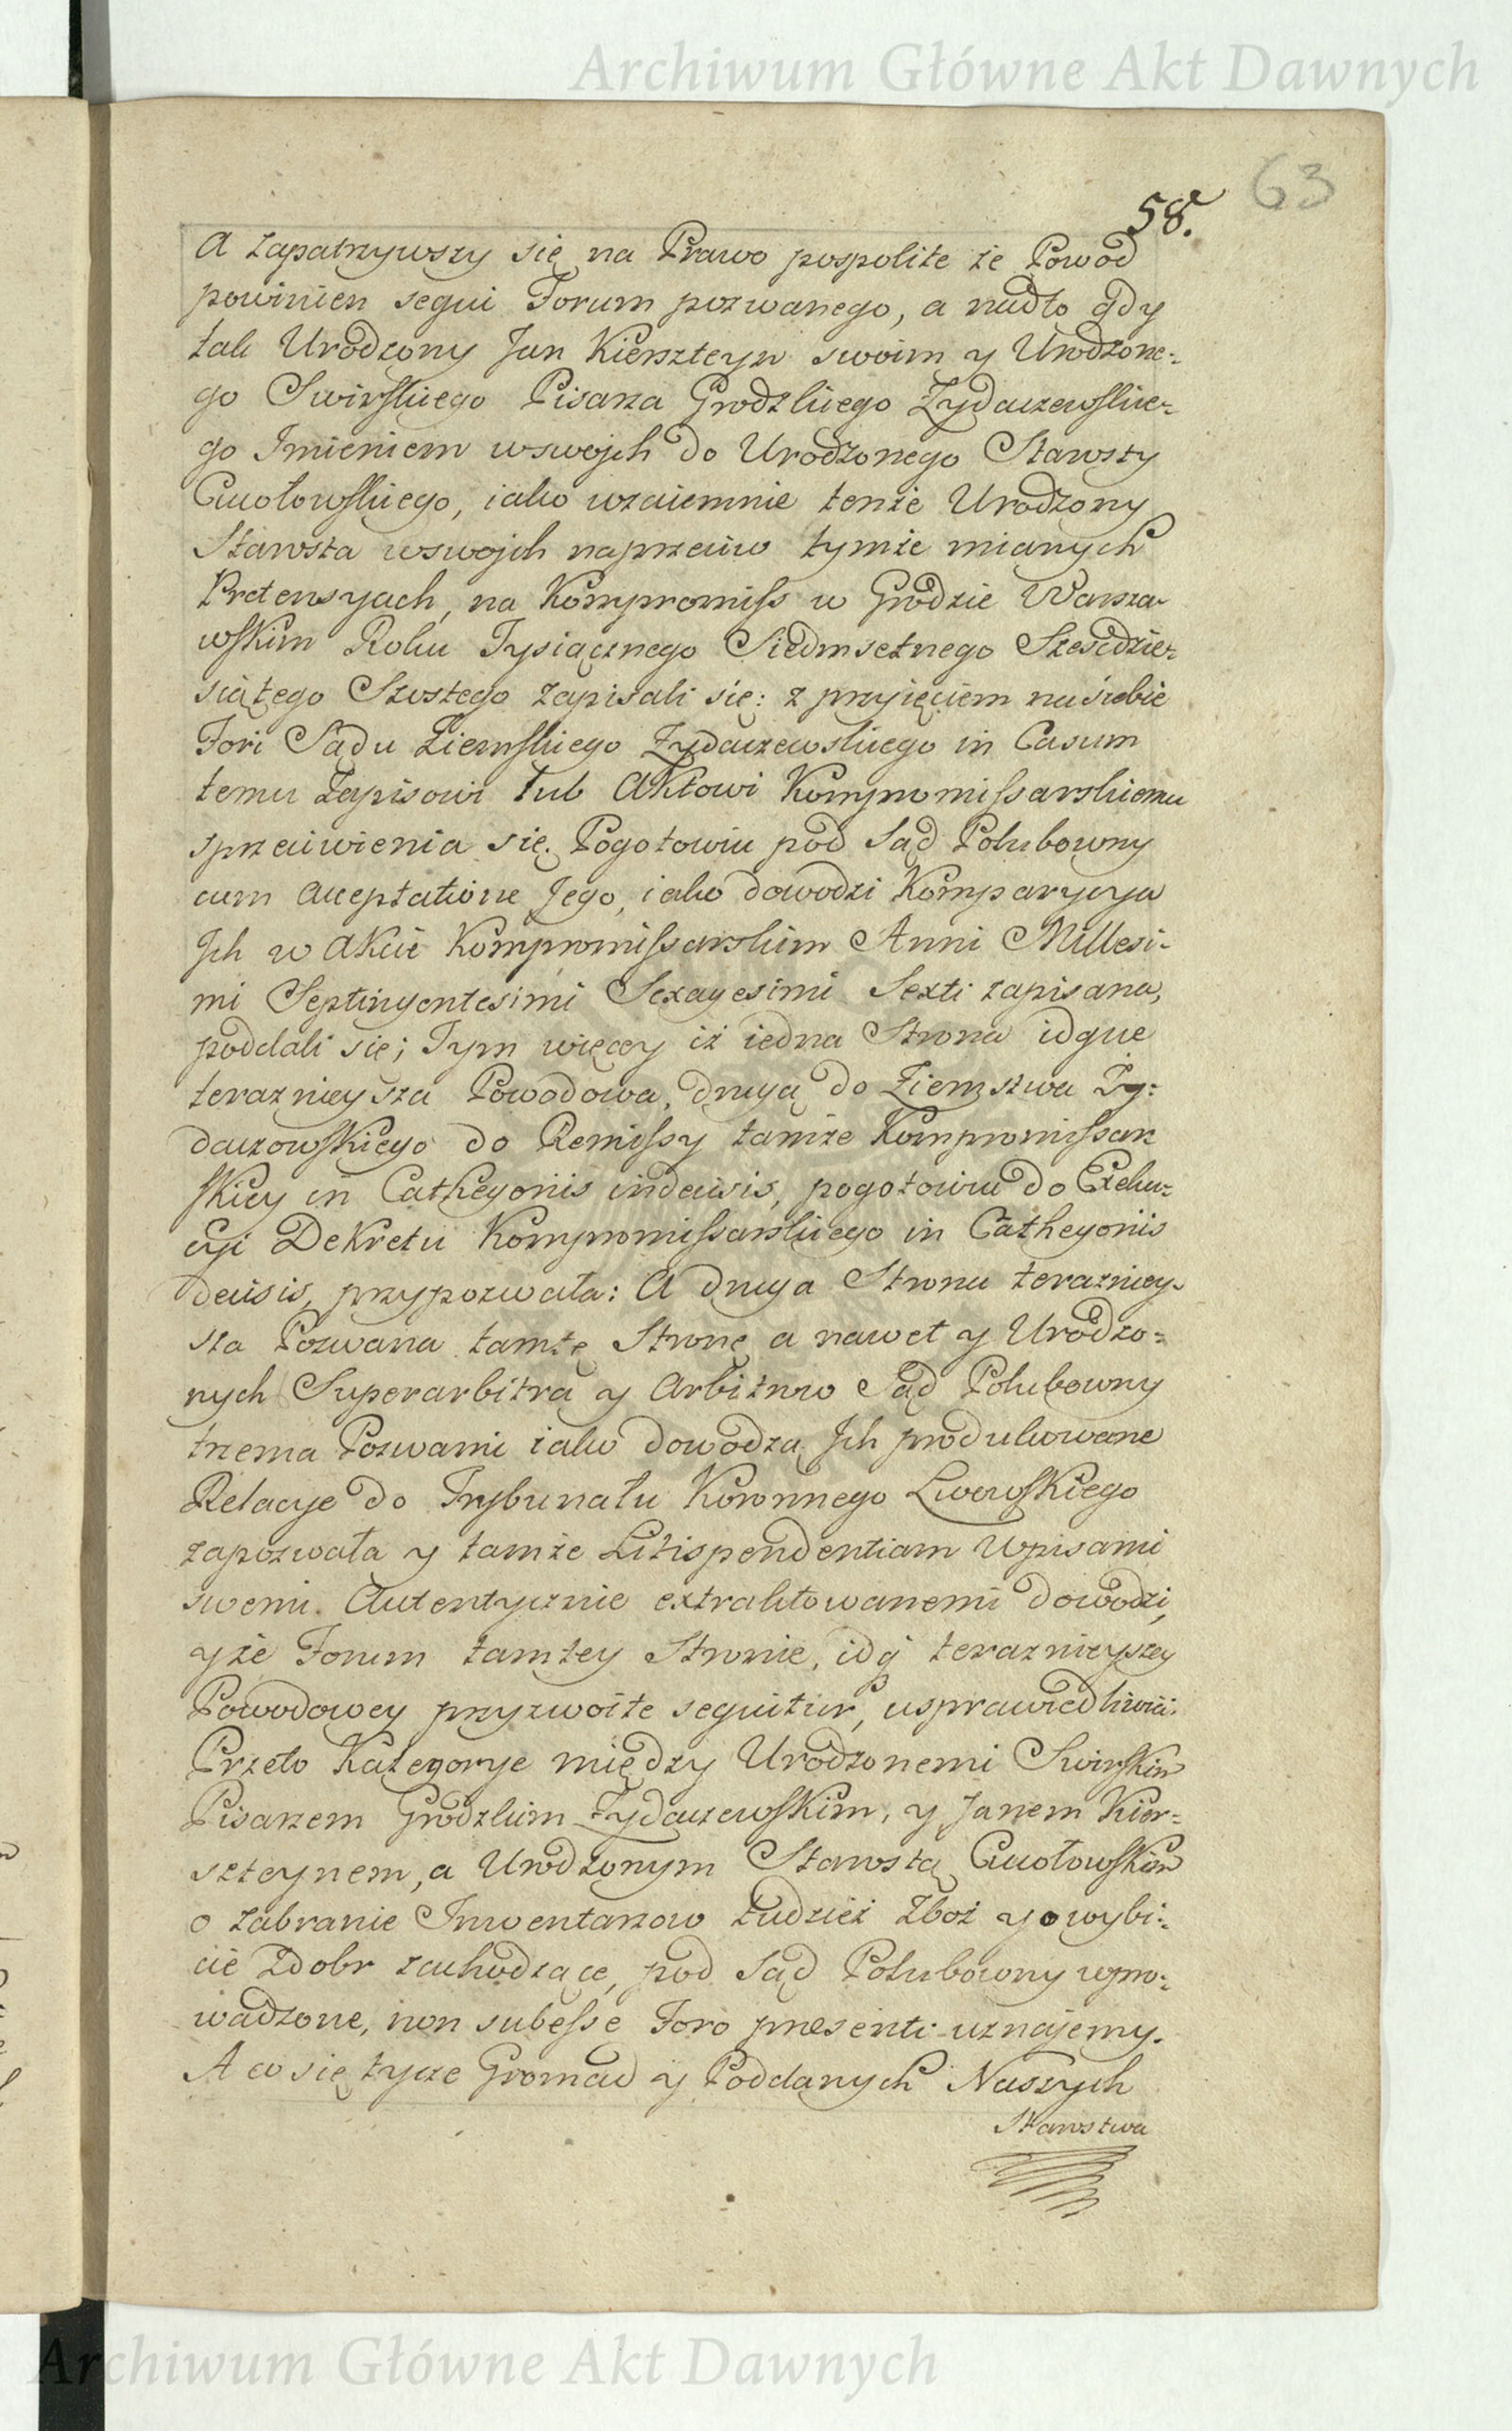 Archiwum Główne Akt Dawnych
63
58.
A zapatrzywszy się na Prawo pospolite że Powod
powinien segui Forum pozwanego, a nadto gdy
tak Urodzony Jan Kierszteyn swoim y Urodzone-
go Swirskiego Pisarza Grodzkiego Zydaczewskie-
go Imieniem wswojch do Urodzonego Starosty
Guołowskiego, iako wzaiemnie tenże Urodzony
Starosta wswojch naprzeciw tymże mianych
Pretensyach, na Kompromiss w Grodzie Warsza-
wskim Roku Tysiącznego Siedmsetnego Sześcdzie-
siątego Szostego zapisali się: z przyięciem na siebie
Fori Sądu Ziemskiego Zydaczewskiego in Casum
temu Zapisowi lub Aktowi Kompromissarskiemu
sprzeciwienia się. Pogotowiu pod Sąd Polubowny
cum acceptatione Jego, iako dowodzi Komparycya
Jch w Akcie Kompromissarskim Anni Millesi-
mi Septingentesimi Sexagesimi Sexti zapisana,
poddali się; Tym więcey iż iedna Strona idque
teraznieysza Powodowa, drugą do Ziemstwa Zy-
daczowskiego do Remissy tamże Kompromissar
skiey in Cathegoriis indecisis, pogotowiu do Exeku-
cyi Dekretu Kompromissarskiego in Cathegoriis
decisis, przypozwała: A druga Strona terazniey-
sza Pozwana tamtę Stronę a nawet y Urodzo-
nych Superarbitra y Arbitrow Sąd Polubowny
trzema Pozwami iako dowodzą Jch produkowane
Relacye do Trybunału Koronnego Lwowskiego
zapozwała y tamże Litispendentiam Wpisami
swemi Autentycznie extraktowanemi dowodzi,
yże Forum tamtey Stronie, idq teraznieyszey
Powodowey przyzwoite seguitur, usprawiedliwia.
Przeto Kategorye między Urodzonemi Swirskim
Pisarzem Grodzkim Zydaczewskim, y Janem Kier-
szteynem, a Urodzonym Starostą Guołowskim
o zabranie Inwentarzow tudzież Zboż y o wybi-
cie Zdobr zachodzące, pod Sąd Polubowny wpro-
wadzone, non subesse Foro præsenti uznajemy.
A co się tycze Gromad y Poddanych Naszych
Starostwa
Archiwum Główne Akt Dawnych